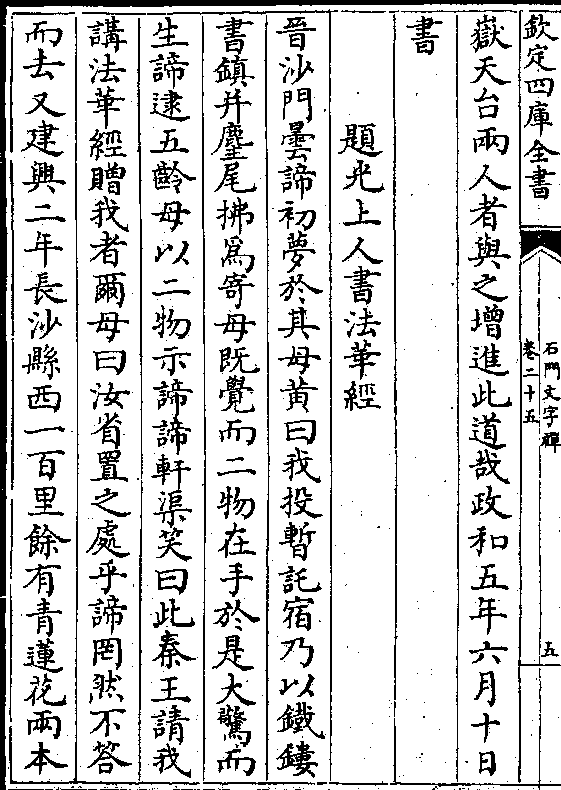 欽定四庫全書
石門文字禪
卷二十五
五
嶽天台兩人者與之增進此道哉政和五年六月十日
書
題光上人書法華經
晉沙門曇諦初夢於其母黃曰我投暫託宿乃以鐵鏤
書鎮并麈尾拂為寄母既覺而二物在手於是大驚而
生諦逮五齡母以二物示諦諦軒渠笑曰此秦王請我
講法華經贈我者爾母曰汝省置之處乎諦罔然不答
而去又建興二年長沙縣西一百里餘有青蓮花兩本